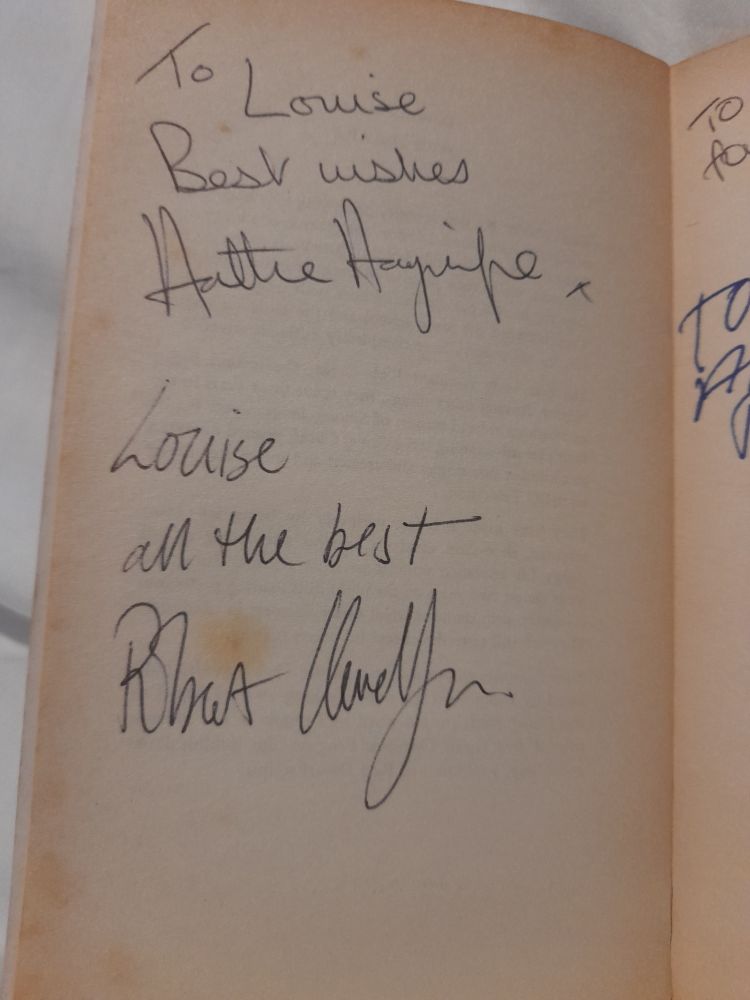 To Louise
Best wishes
Hattie Hayridge x
Louise
all the best
Robert Llewellyn
TO
TO